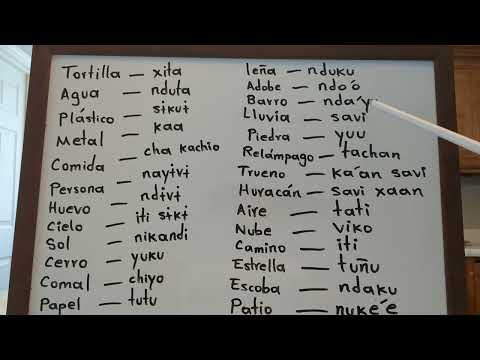 Tortilla — xita
Agua — nduta
Plástico — sɨkuɨ
Metal — kaa
Comida — cha kachio
Persona — nayɨvɨ
Huevo — ndɨvɨ
Cielo — iti sɨkɨ
Sol — nikandi
Cerro — yuku
Comal — chiyo
Papel — tutu
leña — nduku
Adobe — ndo´ó
Barro — nda´y
Lluvia — savi
Piedra — yuu
Relámpago — tachan
Trueno — ka´an savi
Huracán — savi xaan
Aire — tati
Nube — viko
Camino — iti
Estrella — tuñu
Escoba — ndaku
Patio — nuke´e